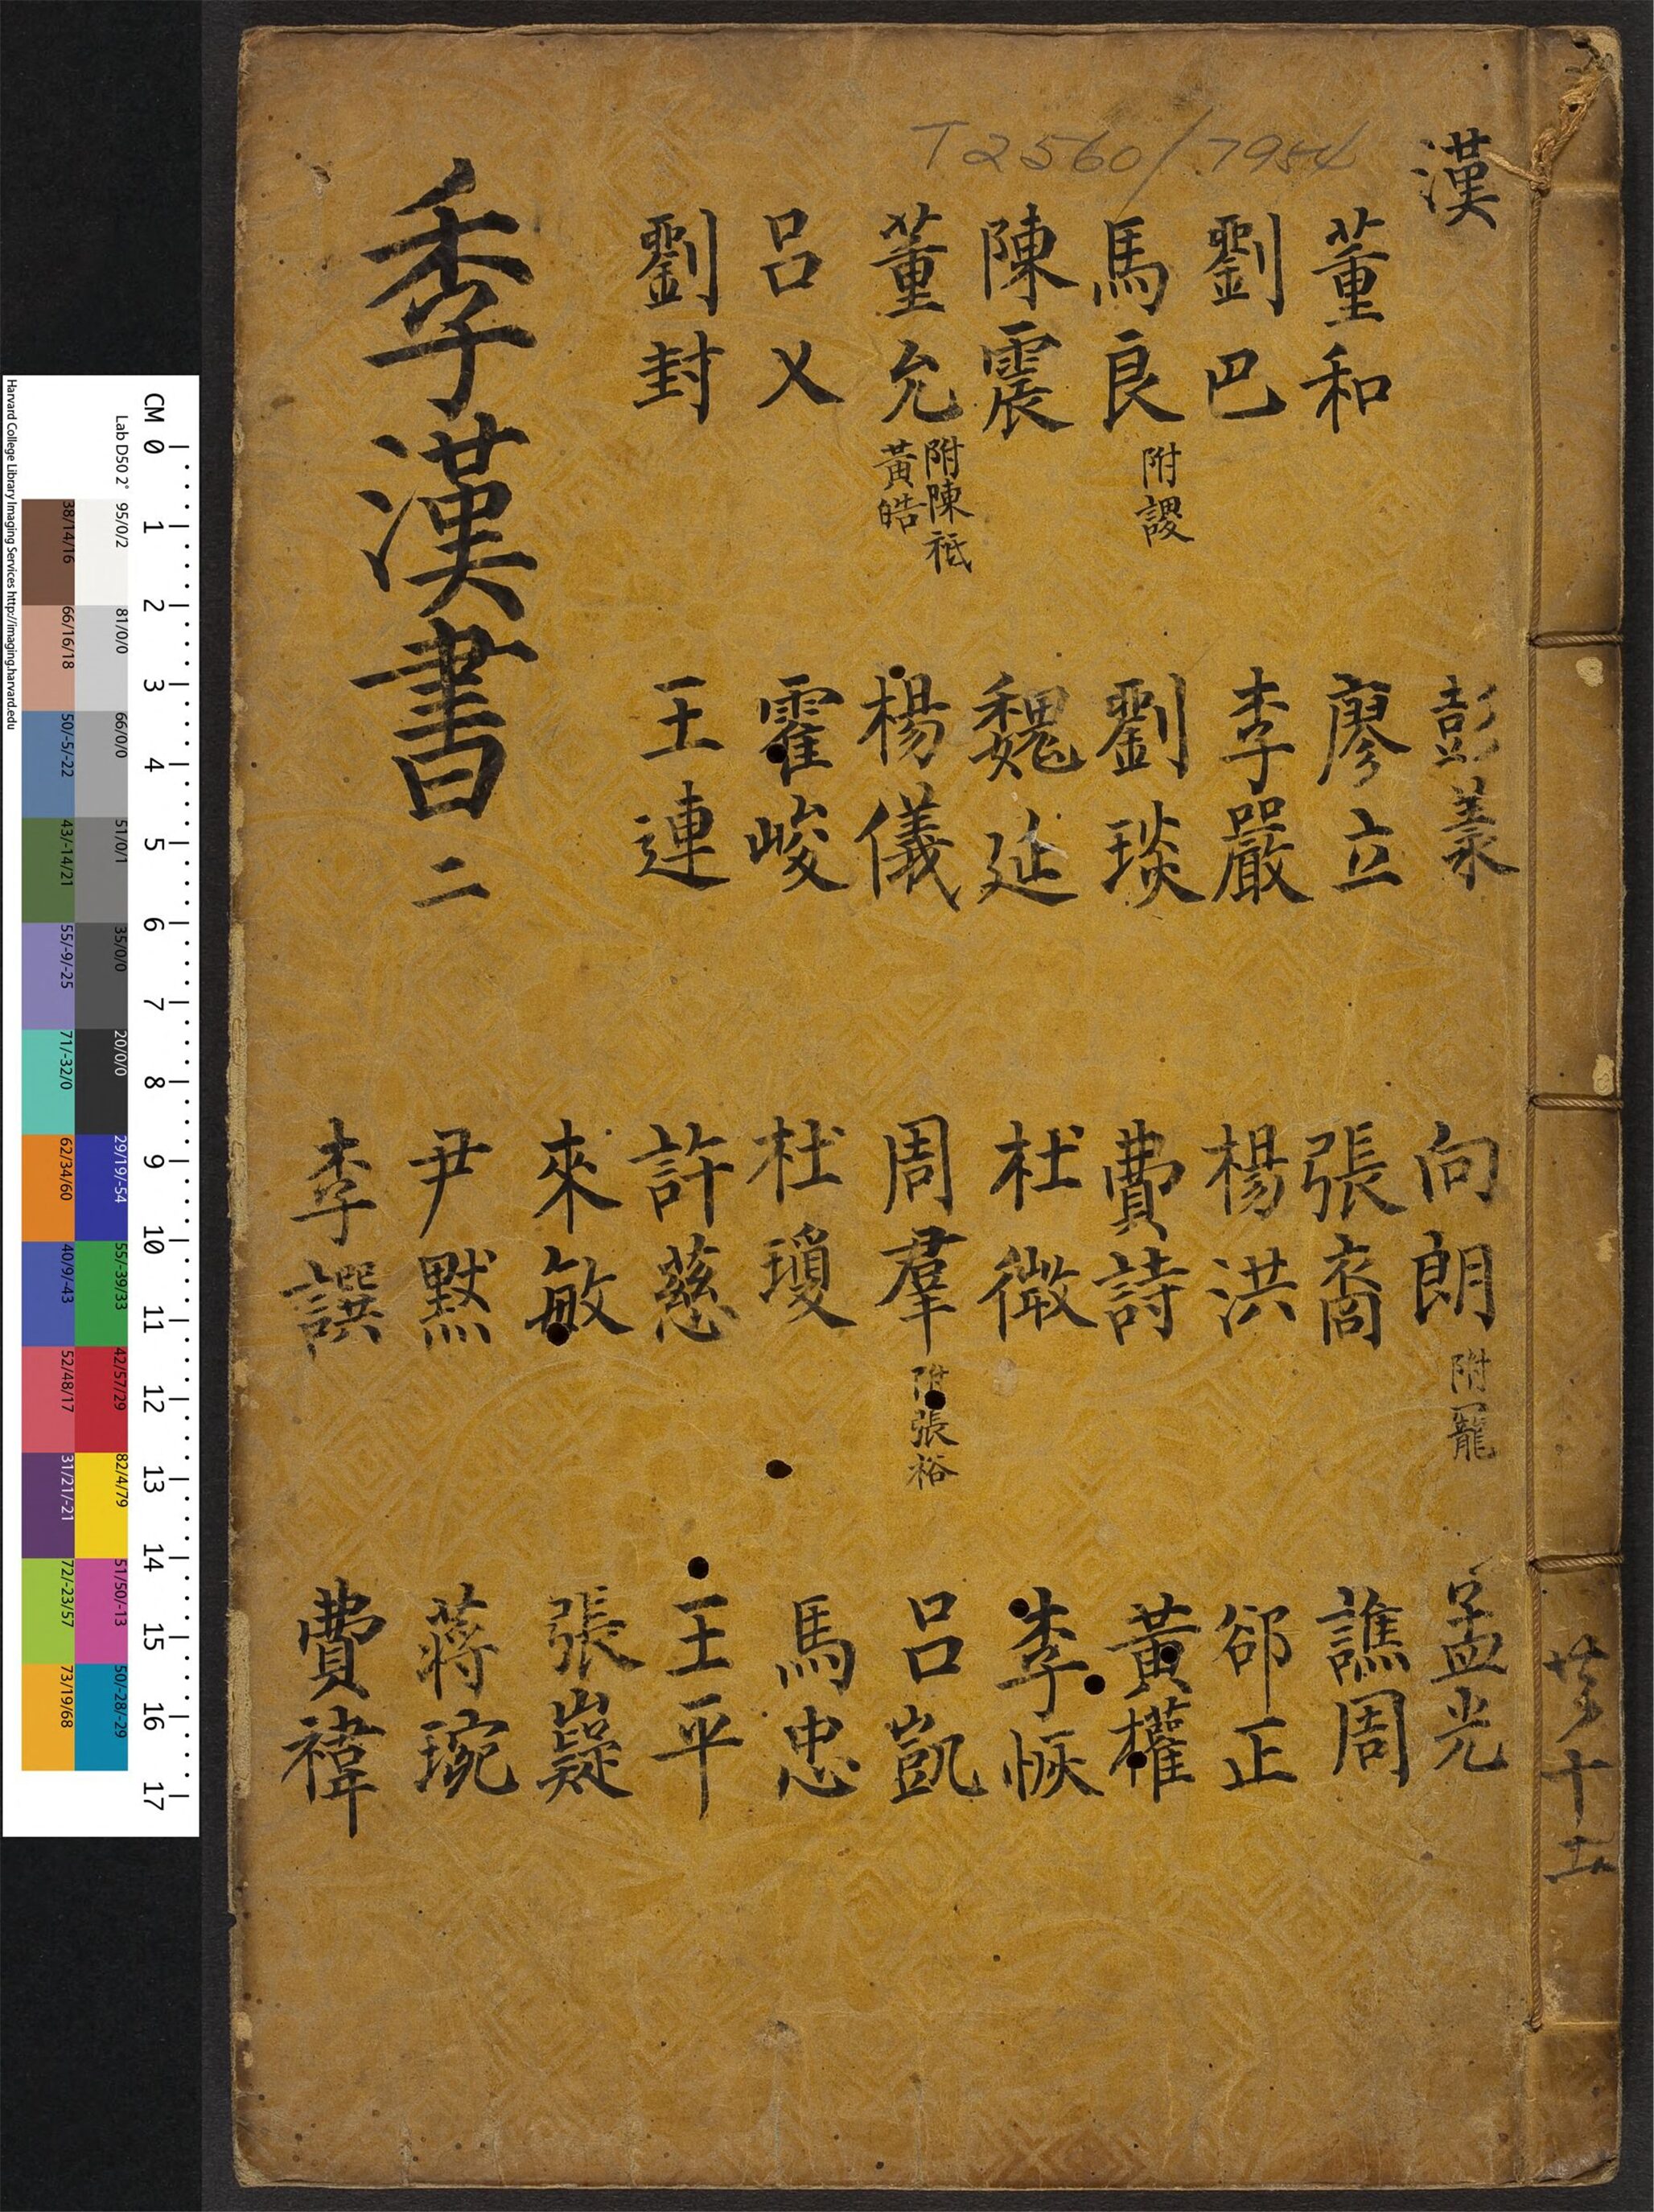 漢
董和
劉巴
馬良 附謖
陳震
董允 附陳祗 黃皓
呂乂
劉封
彭羕
廖立
李嚴
劉琰
魏延
楊儀
霍峻
王連
向朗 附寵
張裔
楊洪
費詩
杜微
周羣 附張裕
杜瓊
許慈
來敏
尹默
李譔
孟光
譙周
郤正
黃權
李恢
呂凱
馬忠
王平
張嶷
蔣琬
費禕
季漢書 二
T 2560/7954
CM 0 1 2 3 4 5 6 7 8 9 10 11 12 13 14 15 16 17
Lab D50 2° 95/0/2 81/0/0 66/0/0 51/0/1 35/0/0 20/0/0 29/19/-54 55/-39/33 42/57/29 82/4/79 51/50/-13 50/-28/-29
38/14/16 66/16/18 50/-5/-22 43/-14/21 55/-9/-25 71/-32/0 62/34/60 40/9/-43 52/48/17 31/21/-21 72/-23/57 73/19/68
Harvard College Library Imaging Services http://imaging.harvard.edu